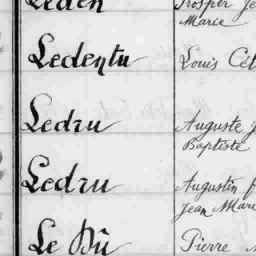 Leden Prosper Je
Marie
Ledentu Louis Cél
Ledru Auguste J
Baptiste
Ledru Augustin F
Jean Marie
Le Dû Pierre